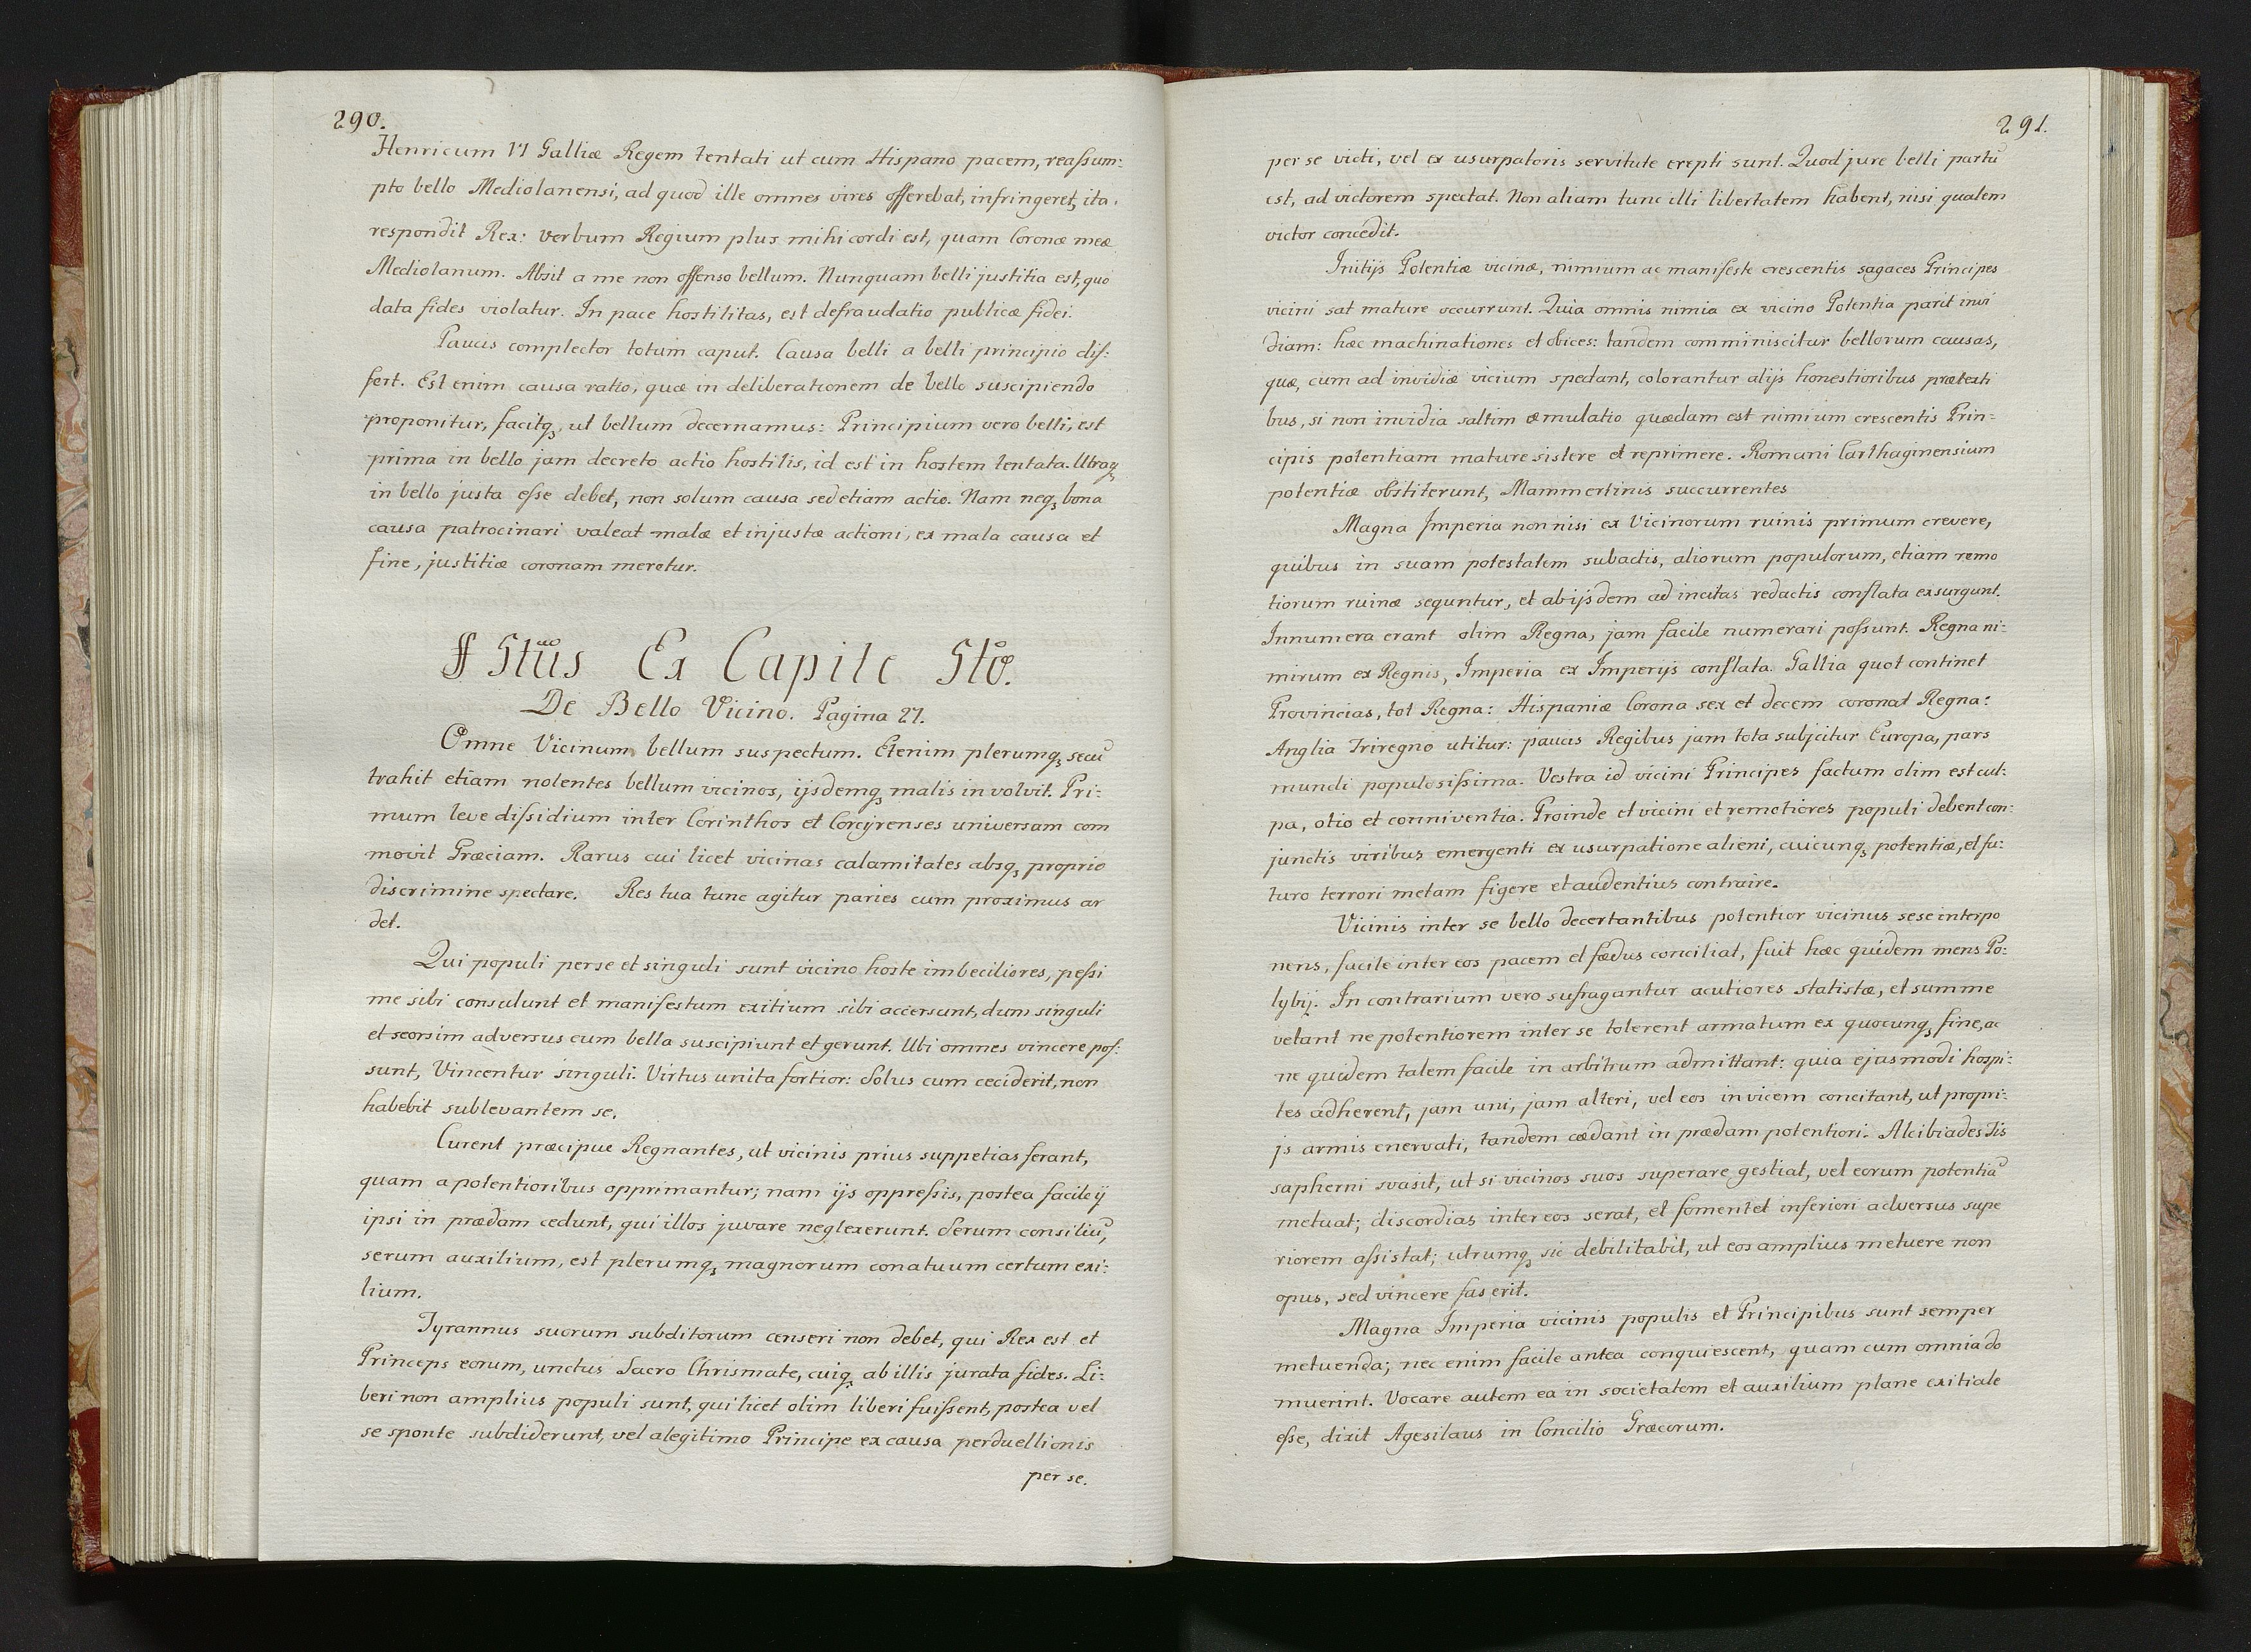 290.
Henricum VI Galliæ Regem tentati ut cum Hispano pacem, reaſsum:
pto bello Mediolanensi, ad quod ille omnes vires offerebat, infringeret, ita
respondit Rex: verbum Regium plus mihi cordi est, quam Coronæ meæ
Mediolanum. Absit a me non offenso bellum. Nunquam belli justitia est, quo
data fides violatur. In pace hostilitas, est defraudatio publicæ fidei.
Paucis complector totum caput. Causa belli a belli principio dif:
fert. Est enim causa ratio, quæ in deliberationem de bello suscipiendo
proponitur, facitqꝫ, ut bellum decernamus: Principium vero belli, est
prima in bello jam decreto actio hostilis, id est in hostem tentata. Utraqꝫ
in bello justa eſse debet, non solum causa sed etiam actio. Nam neqꝫ bona
causa patrocinari valeat malæ et injustæ actioni, ex mala causa et
fine, justitiæ coronam meretur.
§ 5tus Ex Capite 5to.
De Bello Vicino. Pagina 27.
Omne Vicinum bellum suspectum. Etenim plerumqꝫ secū
trahit etiam nolentes bellum vicinos, ijsdemqꝫ malis involvit. Pri:
mum leve diſsidium inter Corinthos et Corcijrenses universam com
movit Græciam. Rarus cui licet vicinas calamitates absqꝫ proprio
discrimine spectare. Res tua tunc agitur paries cum proximus ar
det.
Qui populi per se et singuli sunt vicino hoste imbeciliores, peſsi
me sibi consulunt et manifestum exitium sibi accersunt, dum singuli
et seorsim adversus eum bella suscipiunt et gerunt. Ubi omnes vincere poſ:
sunt, Vincentur singuli. Virtus unita fortior: Solus cum ceciderit, non
habebit sublevantem se.
Curent præcipue Regnantes, ut vicinis prius suppetias ferant,
quam a potentioribus opprimantur; nam ijs oppreſsis, postea facile ij
ipsi in prædam cedunt, qui illos juvare neglexerunt. Serum consiliū,
serum auxilium, est plerumqꝫ magnorum conatuum certum exi:
tium.
Tyrannus suorum subditorum censeri non debet, qui Rex est et
Princeps eorum, unctus Sacro Chrismate, cuiqꝫ ab illis jurata fides. Li:
beri non amplius populi sunt, qui licet olim liberi fuiſsent, postea vel
se sponte subdiderunt, vel a legitimo Principe ex causa perduellionis
per se.
291.
per se victi, vel ex usurpatoris servitute erepti sunt. Quod jure belli partū
est, ad victorem spectat. Non aliam tunc illi libertatem habent, nisi qualem
victor concedit.
Initijs Potentiæ vicinæ, nimium ac manifeste crescentis sagaces Principes
vicini sat mature occurrunt. Quia omnis nimia ex vicino Potentia parit invi
diam: hæc machinationes et obices: tandem comminiscitur bellorum causas,
quæ, cum ad invidiæ vicium spectant, colorantur alijs honestioribus prætexti
bus, si non invidia saltim æmulatio quædam est nimium crescentis Prin=
cipis potentiam mature sistere et reprimere. Romani Carthaginensium
potentiæ obstiterunt, Mammertinis succurrentes
Magna Imperia non nisi ex Vicinorum ruinis primum crevere,
quibus in suam potestatem subactis, aliorum populorum, etiam remo
tiorum ruinæ sequntur, et ab ijsdem ad incitas redactis conflata exsurgunt.
Innumera erant olim Regna, jam facile numerari poſsunt. Regna ni=
mirum ex Regnis, Imperia ex Imperijs conflata. Gallia quot continet
Provincias, tot Regna: Hispaniæ Corona sex et decem coronat Regna:
Anglia Triregno utitur: paucis Regibus jam tota subjcitur Europa, pars
mundi populosiſsima. Vestra id vicini Principes factum olim est cul:
pa, otio et conniventia. Proinde et vicini et remotiores populi debent con:
junctis viribus emergenti ex usurpatione alieni, cuicunqꝫ potentiæ, et fu:
turo terrori metam figere et audentius contraire.
Vicinis inter se bello decertantibus potentior vicinus sese interpo
nens, facile inter eos pacem et fædus conciliat, fuit hæc quidem mens Po:
lybij. In contrarium vero sufragantur acutiores statistæ, et summe
vetant ne potentiorem inter se tolerent armatum ex quocunqꝫ fine, ac
ne quidem talem facile in arbitrum admittant: quia ejusmodi hospi:
tes adherent, jam uni, jam alteri, vel eos invicem concitant, ut propri:
js armis enervati, tandem cædant in prædam potentiori. Alcibiades Tis
sapherni svasit, ut si vicinos suos superare gestiat, vel eorum potentiā
metuat; discordias inter eos serat, et fomentet inferiori adversus supe
riorem aſsistat; utrumqꝫ sic debilitabit, ut eos amplius metuere non
opus, sed vincere fas erit.
Magna Imperia vicinis populis et Principibus sunt semper
metuenda; nec enim facile antea conquiescent, quam cum omnia do
muerint. Vocare autem ea in societatem et auxilium plane exitiale
eſse, dixit Agesilaus in Concilio Græcorum.